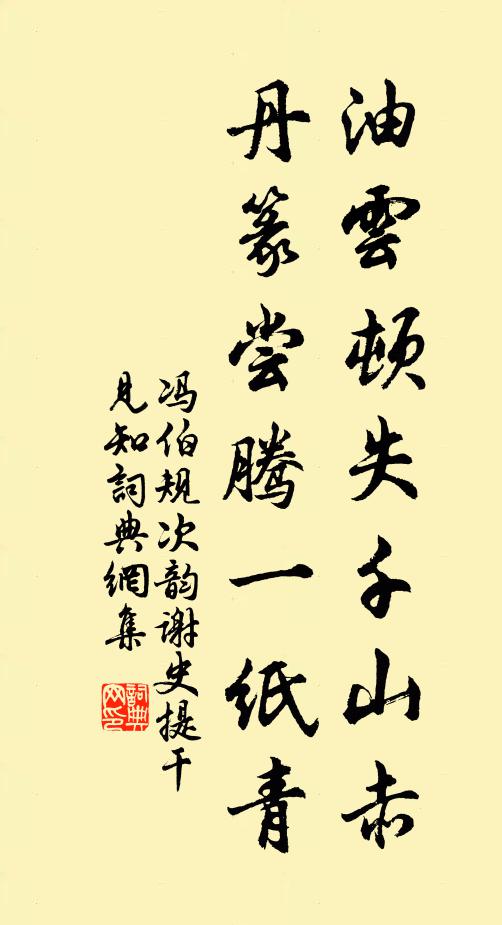 油雲頓失千山赤
丹篆尝腾一纸青
冯伯规次韵谢史提干
见知詞典網集
詞典網印